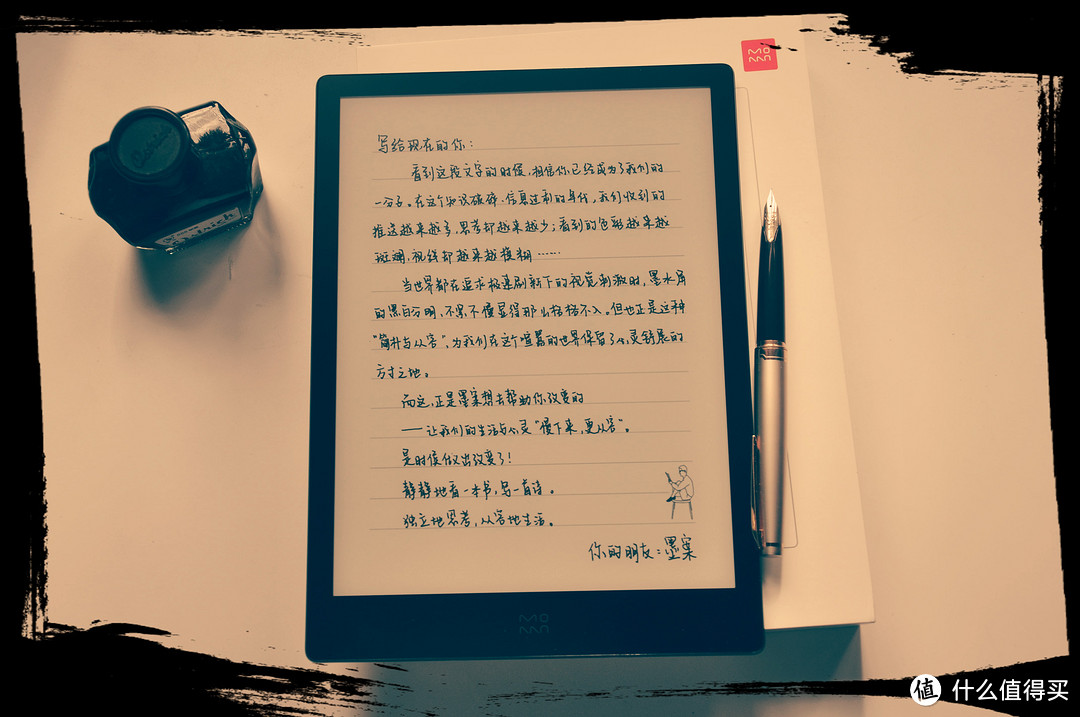 写给现在的你：
看到这段文字的时候，相信你已经成为了我们的
一分子。在这个知识破碎、信息过剩的年代，我们收到的
推送越来越多，思考却越来越少；看到的色彩越来越
斑斓，视线却越来越模糊……
当世界都在追求极速刷新下的视觉刺激时，墨水屏
的黑白分明，不紧不慢显得那么格格不入。但也正是这种
“简朴与从容”，为我们在这个喧嚣的世界保留了心灵舒展的
方寸之地。
而这，正是墨案想去帮助你改变的
——让我们的生活与心灵“慢下来，更从容”。
是时候做出改变了！
静静地看一本书，写一首诗。
独立地思考，从容地生活。
你的朋友：墨案
值 什么值得买